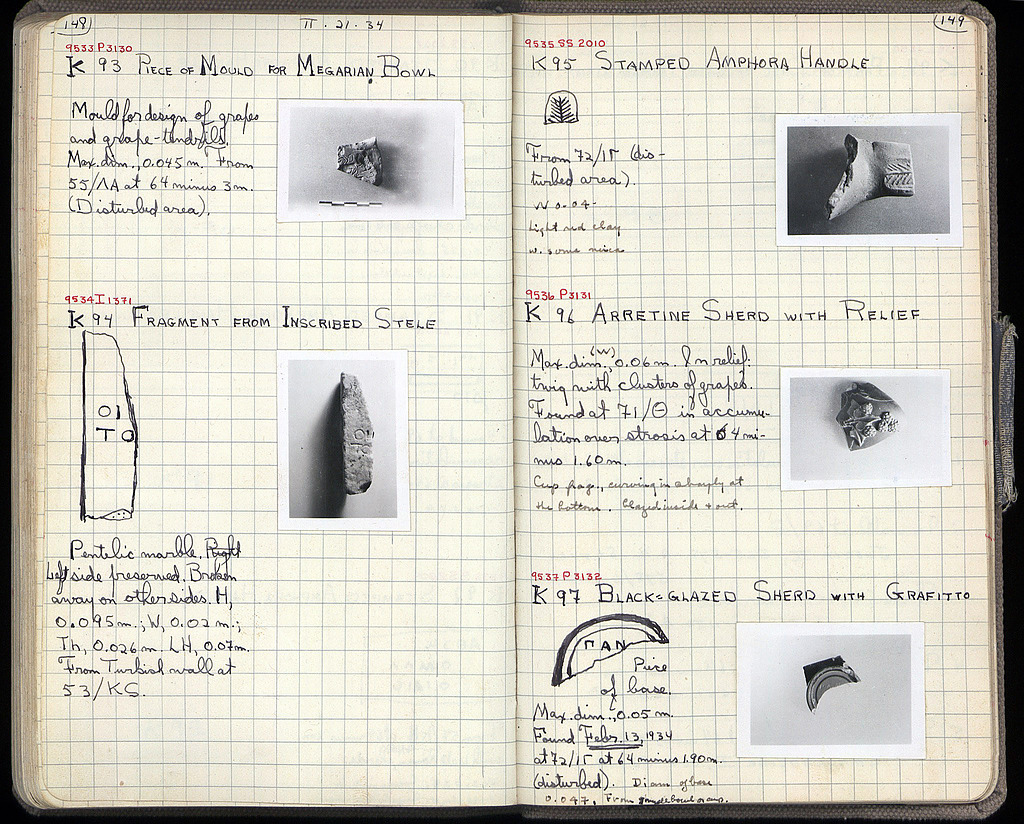 148
II · 21 · 34
9533 P 3130
K 93 PIECE OF MOULD FOR MEGARIAN BOWL
Mould for design of grapes
and grape-tendrils.
Max. dim., 0.045 m. From
55/ΛΑ at 64 minus 3 m.
(Disturbed area).
9534 I 1371
K 94 FRAGMENT FROM INSCRIBED STELE
ΟΙ
ΤΟ
Pentelic marble. Right
Left side preserved. Broken
away on other sides. H,
0.095 m.; W, 0.02 m.;
Th, 0.026 m. LH, 0.07 m.
From Turkish wall at
53/ΚS.
149
9535 SS 2010
K 95 STAMPED AMPHORA HANDLE
From 72/ΙΓ (dis-
turbed area).
W 0.04-
Light red clay
w. some mica
9536 P 3131
K 96 ARRETINE SHERD WITH RELIEF
(W)
Max. dim., 0.06 m. In relief:
twig with clusters of grapes.
Found at 71/Θ in accumu-
lation over strosis at 64 mi-
nus 1.60 m.
Cup frag., curving in sharply at
the bottom. Glazed inside + out.
9537 P 3132
K 97 BLACK=GLAZED SHERD WITH GRAFITTO
ΠΑΝ
Piece
of base.
Max. dim., 0.05 m.
Found Febr. 13, 1934
at 72/ΙΓ at 64 minus 1.90 m.
(disturbed). Diam of base
0.047. From